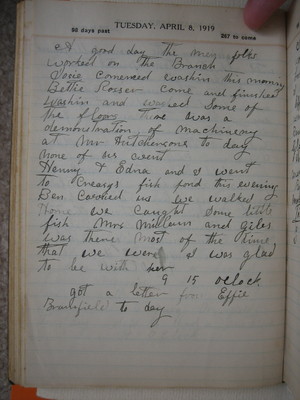 TUESDAY, APRIL 8, 1919
98 days past
267 to come
A good day the men folks
worked on the Branch
Josie Comenced washin this morning
Bettie Rosser Come and finished
washin and waxed Some of
the floors thare was a
demonstration of machineary
at Mr Hutchersons to day
none of us went
Henry & Edna and I went
to Creasys fish pond this evening
Ben Carried us we walked
Home we caught Some little
fish Mrs and Giles
was there most of the time
that we were I was glad
to be with her
9 15 oclock
got a letter from Effie
to day